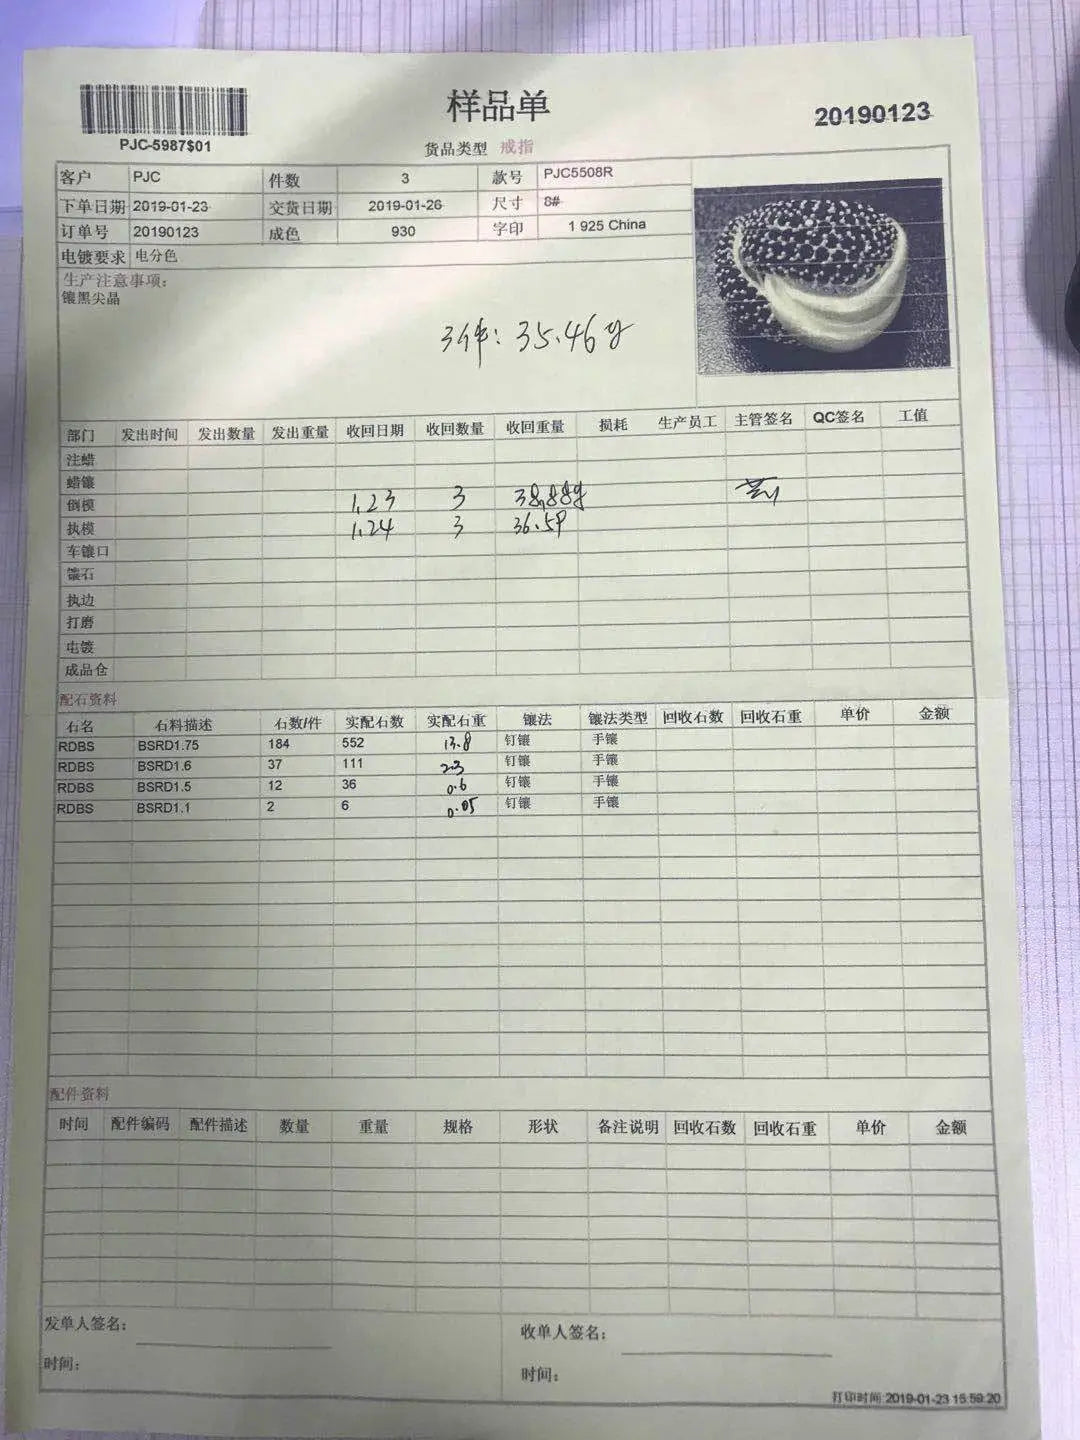 样品单
20190123
PJC-5987$01
货品类型 戒指
客户 PJC 件数 3 款号 PJC5508R
下单日期 2019-01-23 交货日期 2019-01-26 尺寸 8#
订单号 20190123 成色 930 字印 1 925 China
电镀要求 电分色
生产注意事项:
镶黑尖晶
3件: 35.46g
部门 发出时间 发出数量 发出重量 收回日期 收回数量 收回重量 损耗 生产员工 主管签名 QC签名 工值
注蜡
蜡镶
倒模 1.23 3 38.88g
执模 1.24 3 36.59
车镶口
镶石
执边
打磨
电镀
成品仓
配石资料
石名 石料描述 石数/件 实配石数 实配石重 镶法 镶法类型 回收石数 回收石重 单价 金额
RDBS BSRD1.75 184 552 13.8 钉镶 手镶
RDBS BSRD1.6 37 111 2.3 钉镶 手镶
RDBS BSRD1.5 12 36 0.6 钉镶 手镶
RDBS BSRD1.1 2 6 0.05 钉镶 手镶
配件资料
时间 配件编码 配件描述 数量 重量 规格 形状 备注说明 回收石数 回收石重 单价 金额
发单人签名:
收单人签名:
时间:
时间:
打印时间:2019-01-23 15:59:20